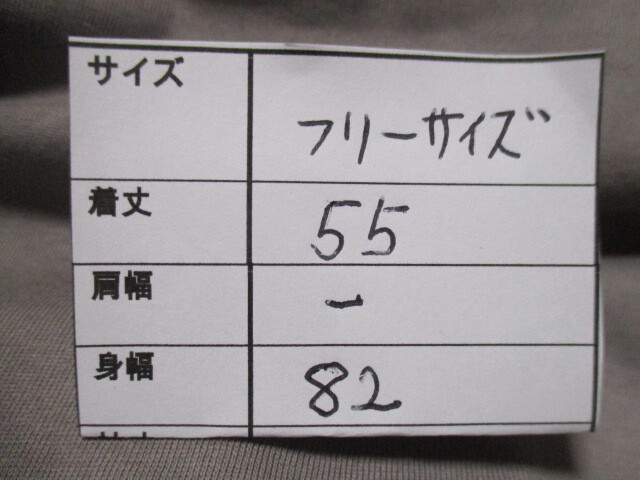 サイズ フリーサイズ
着丈 55
肩幅 -
身幅 82